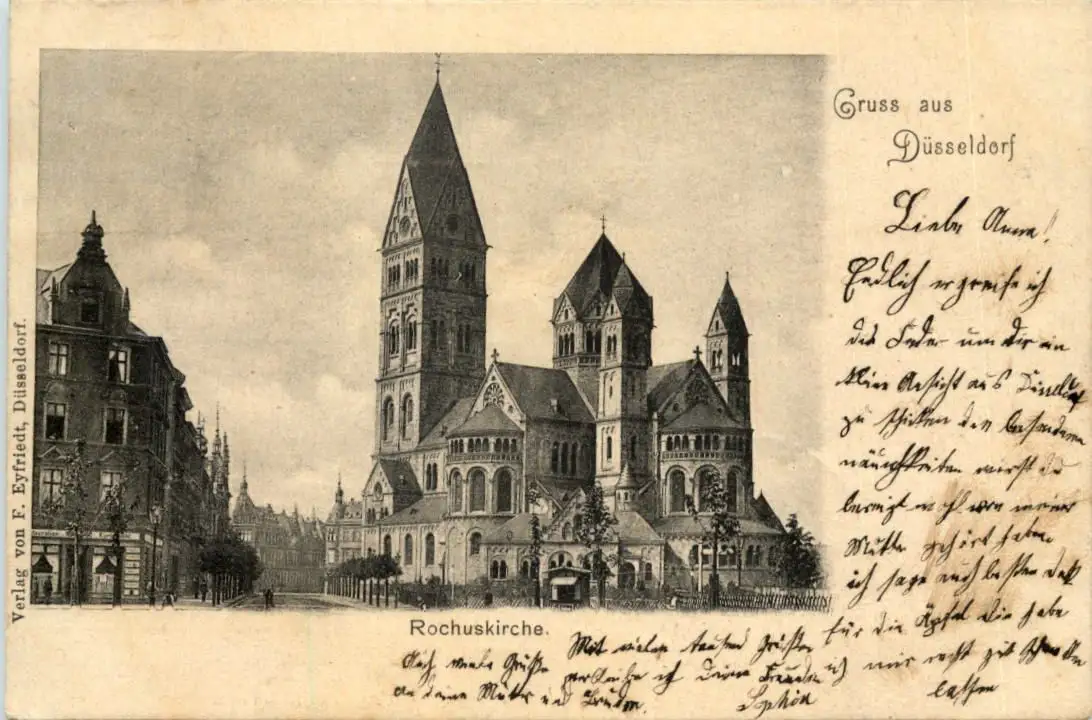 Gruss aus
Düsseldorf
Liebe Anna!
Endlich ergreife ich
die Feder um dir ein
kleine Ansicht aus Düsseldorf
zu schicken den besonderen
wirst du
bereits wohl von meiner
Mutter gehört haben
ich sage auch besten Dank
für die Äpfel die habe
ich mir recht gut schmecken
lassen
Mit vielen tausend Grüßen
verbleibe ich Deine Freundin
Sophie
Auch viele Grüße
an deine Mutter und Brüder.
Rochuskirche.
Verlag von F. Eyfriedt, Düsseldorf.